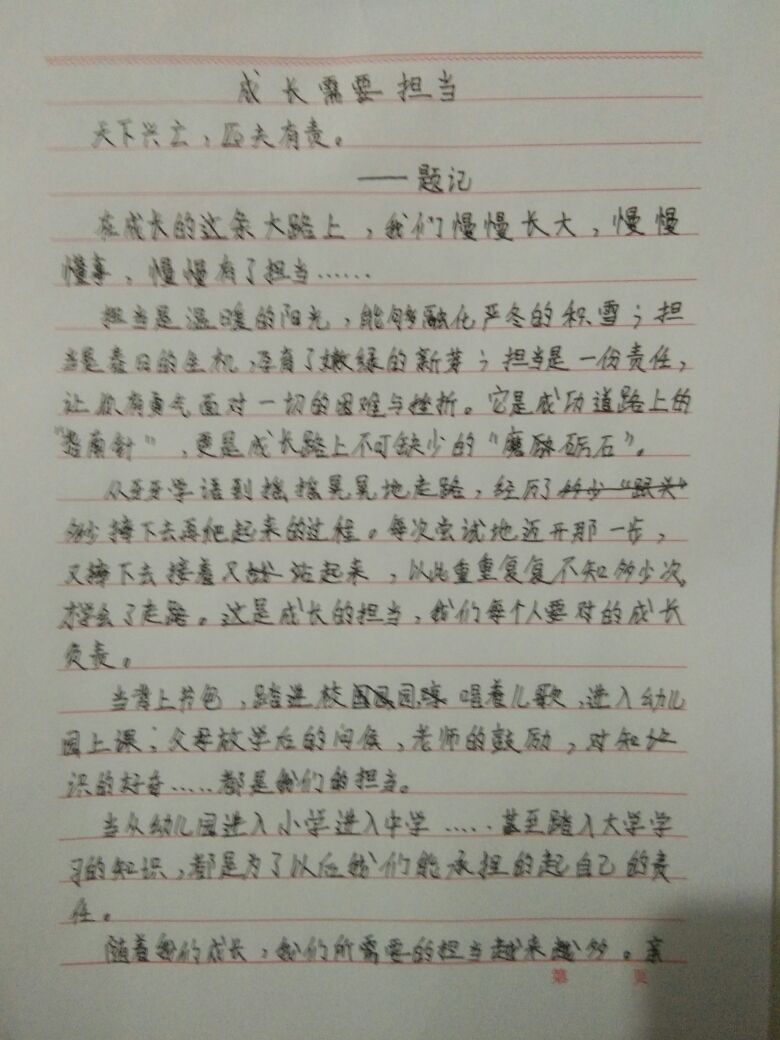 成长需要担当
天下兴亡，匹夫有责。
——题记
在成长的这条大路上，我们慢慢长大，慢慢
懂事，慢慢有了担当……
担当是温暖的阳光，能够融化严冬的积雪；担
当是春日的生机，孕育了嫩绿的新芽；担当是一份责任，
让你有勇气面对一切的困难与挫折。它是成功道路上的
“指南针”，更是成长路上不可缺少的“磨砺石”。
从牙牙学语到摇摇晃晃地走路，经历了
多少摔下去再爬起来的过程。每次尝试地迈开那一步，
又摔下去接着又站起来，以此重重复复不知多少次，
才学会了走路。这是成长的担当，我们每个人要对的成长
负责。
当背上书包，踏进校园，唱着儿歌，进入幼儿
园上课；父母放学后的问候，老师的鼓励，对知
识的好奇……都是我们的担当。
当从幼儿园进入小学进入中学……甚至踏入大学学
习的知识，都是为了以后我们能承担的起自己的责
任。
随着我们成长，我们所需要的担当越来越多。亲
第 页